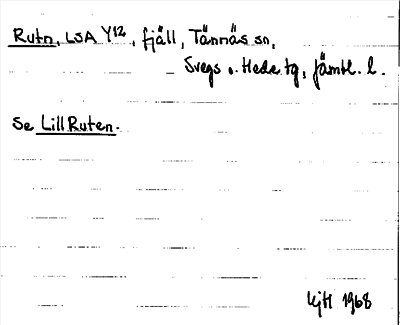 Rutn, LSA Y12, fjäll, Tännäs sn,
Svegs o. Hede tg, Jämtl. l.
Se Lill Ruten.
KjH 1968